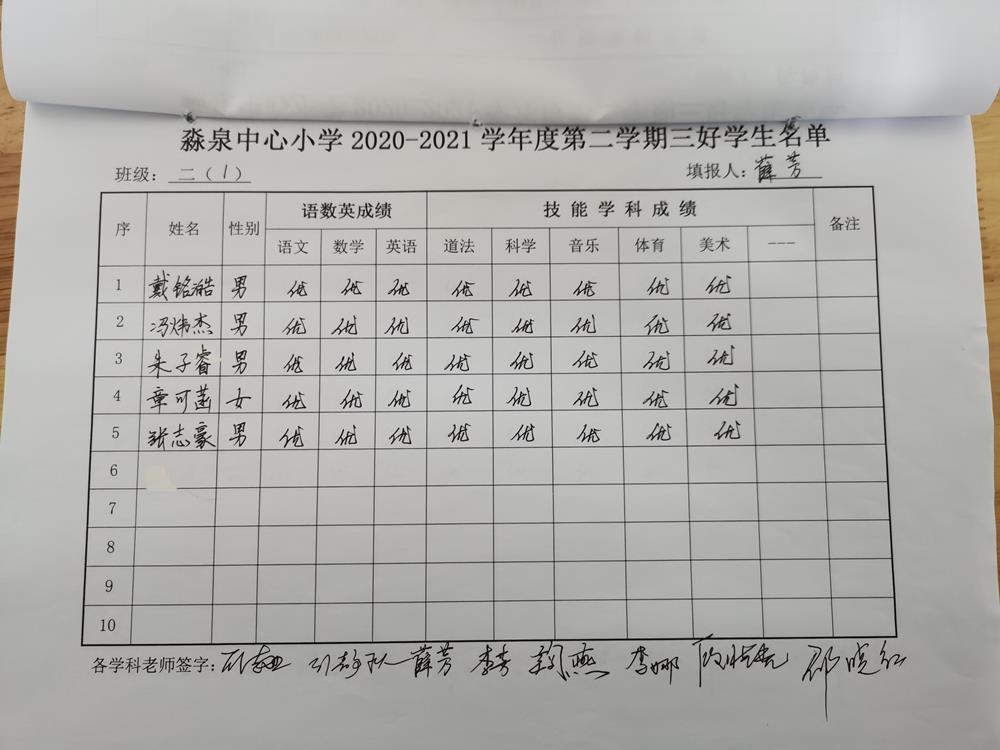 淼泉中心小学2020-2021学年度第二学期三好学生名单
班级：二（1） 填报人：薛芳
序 姓名 性别 语数英成绩 技能学科成绩 备注
语文 数学 英语 道法 科学 音乐 体育 美术 ---
1 戴铭浩 男 优 优 优 优 优 优 优 优
2 冯炜杰 男 优 优 优 优 优 优 优 优
3 朱子睿 男 优 优 优 优 优 优 优 优
4 章可菡 女 优 优 优 优 优 优 优 优
5 张志豪 男 优 优 优 优 优 优 优 优
6
7
8
9
10
各学科老师签字： 薛芳 李芳 李娜 邵晓红